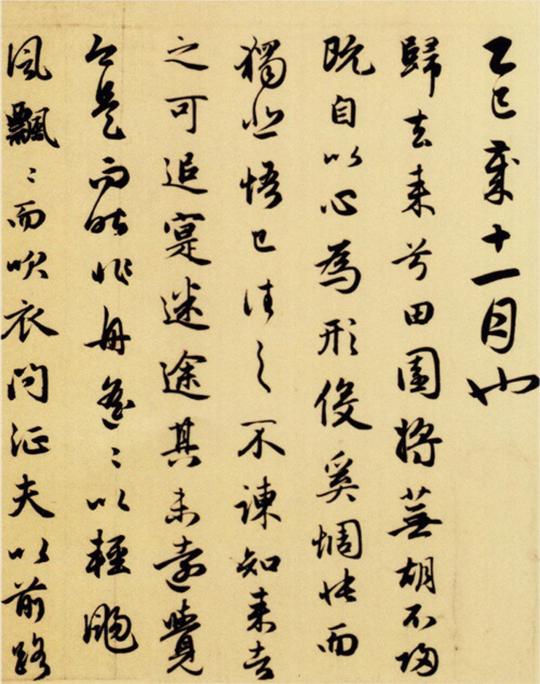 乙巳歲十一月也
歸去来兮田園將蕪胡不歸
既自以心為形役奚惆悵而
獨悲悟已往之不諫知来者
之可追寔迷途其未遠覺
今是而昨非舟遥〻以輕颺
風飄〻而吹衣問征夫以前路